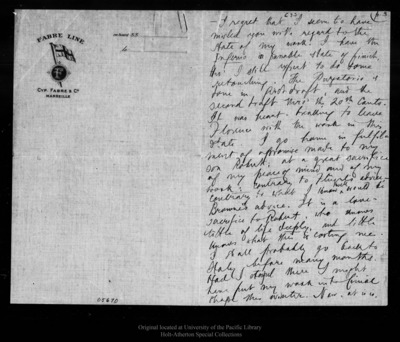 FABRE LINE
CYP. FABRE & Cº
MARSEILLE
I regret that I seem to have
misled you with regard to the
state of my work. I have the
Inferno in
this. I still expect to do some
retouching. The Purgatorio is
done in first draft, and the
second draft thro' the 20th Canto.
It was heart-breaking to leave
Florence with the work in this
state. I go home in fulfil-
ment of a promise made to my
son Robert; at a great sacrifice
of my peace of mind and of my
work: contrary to advice
contrary to what I know would be
above. It is a love-
sacrifice to Robert, who knows
little of life deeply, and little
knows what this is costing me.
I shall probably go back to
Italy before many months.
Had I stayed there I might
have put my work into final
shape this winter. Now, at
05670
Original located at University of the Pacific Library
Holt-Atherton Special Collections